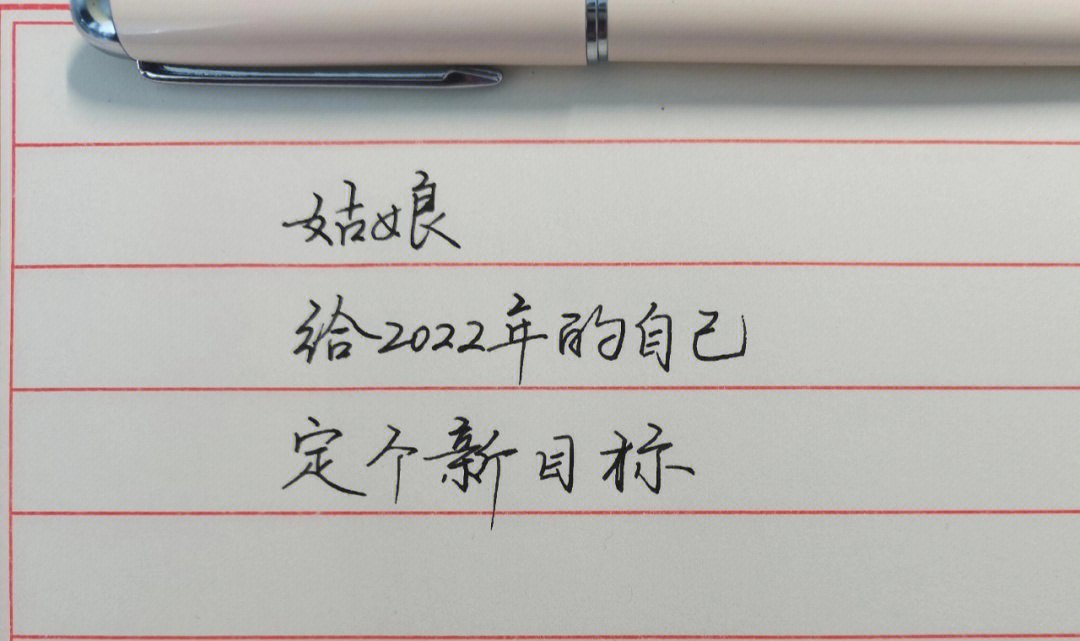 姑娘
给2022年的自己
定个新目标